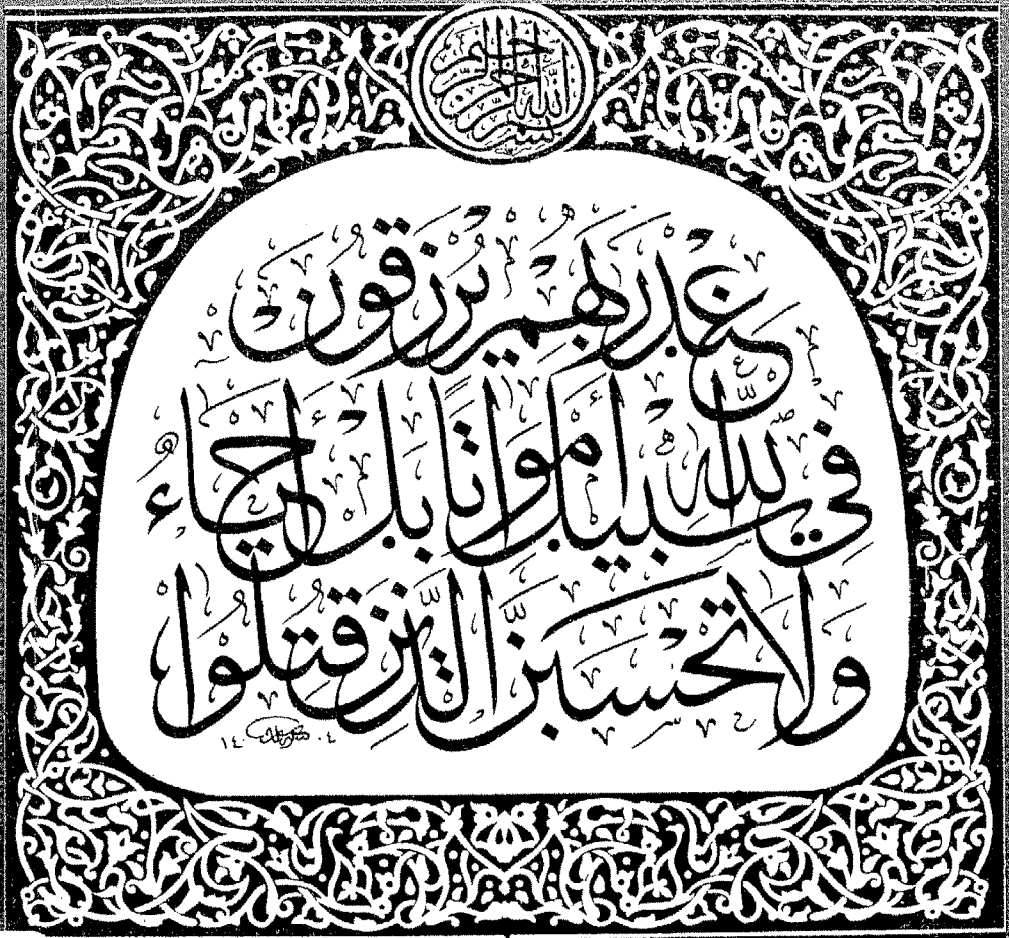 بسم الله الرحمن الرحيم
وَلَا تَحْسَبَنَّ الَّذِينَ قُتِلُوا
فِي سَبِيلِ اللَّهِ أَمْوَاتًا بَلْ أَحْيَاءٌ
عِنْدَ رَبِّهِمْ يُرْزَقُونَ